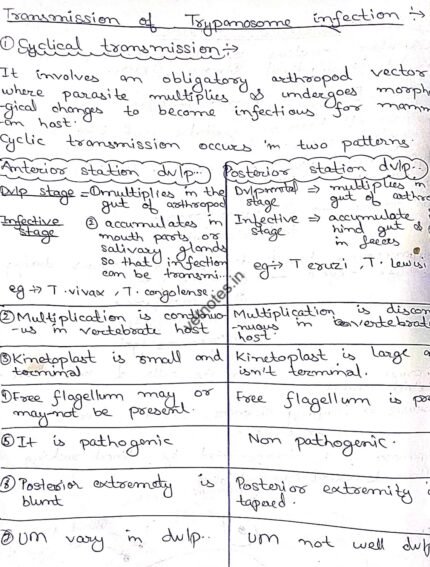 Transmission of Trypanosome infection :→
① Cyclical transmission :→
It involves an obligatory arthropod vector
where parasite multiplies & undergoes morph
-gical changes to become infectious for mamm
-an host.
Cyclic transmission occurs in two patterns
Anterior station dvlp..
Dvlp stage = ① multiplies in the
gut of arthropod
Infective stage ② accumulates in
mouth parts or
salivary glands
so that infection
can be transmi...
eg → T. vivax, T. congolense.
Posterior station dvlp..
stage ⇒ multiplies in
gut of arthro
Infective stage ⇒ accumulate
hind gut &
in feces
eg → T cruzi, T. lewisi
② Multiplication is continuo
-us in vertebrate host
Multiplication is discon
-nuous in vertebrat
host.
③ Kinetoplast is small and
terminal
Kinetoplast is large a
isn't termmal.
④ Free flagellum may or
may-not be present.
Free flagellum is
⑤ It is pathogenic
Non pathogenic.
Posterior extremety is
blunt
Posterior extremity i
tapaed.
UM vary in dvlp..
UM not well dvlp
vetnotes.in